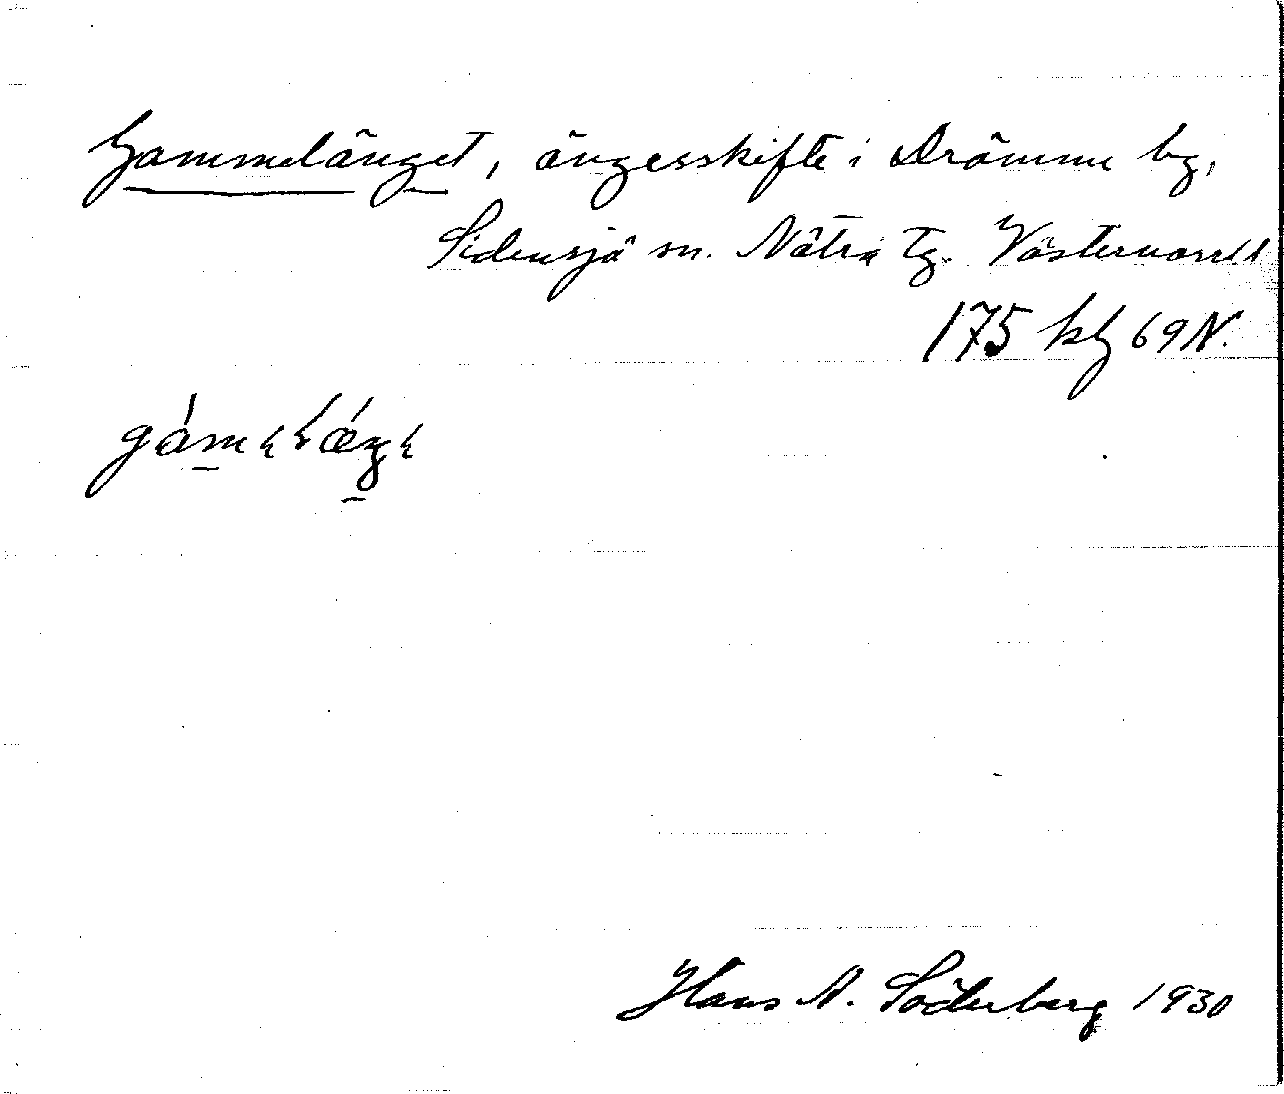 Gammelänget, ängesskifte i Drömme by,
Sidensjö sn. Nätra tg. Västernorrl
175 kbf 69 N.
Hans A. Söderberg 1930